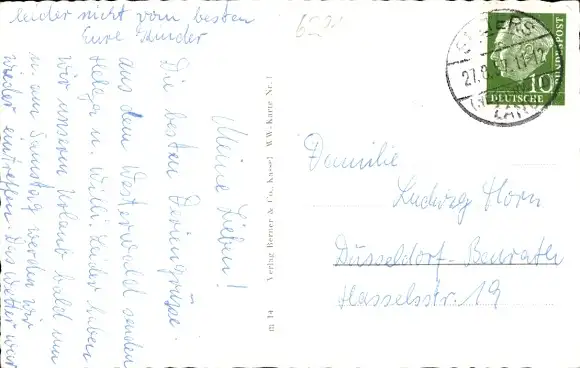 Meine Lieben!
Die besten Feriengrüsse
aus dem Westerwald senden
Helga u. Willi. Leider haben
wir unseren Urlaub bald um
u. am Samstag werden wir
wieder eintreffen. Das Wetter war
leider nicht vom besten
Eure Kinder
m 14 Verlag Berner & Co., Kassel WW-Karte Nr. 1
27.8.
DEUTSCHE
BUNDESPOST
10
Familie
Ludwig Horn
Düsseldorf-Benrath
Hasselsstr. 19